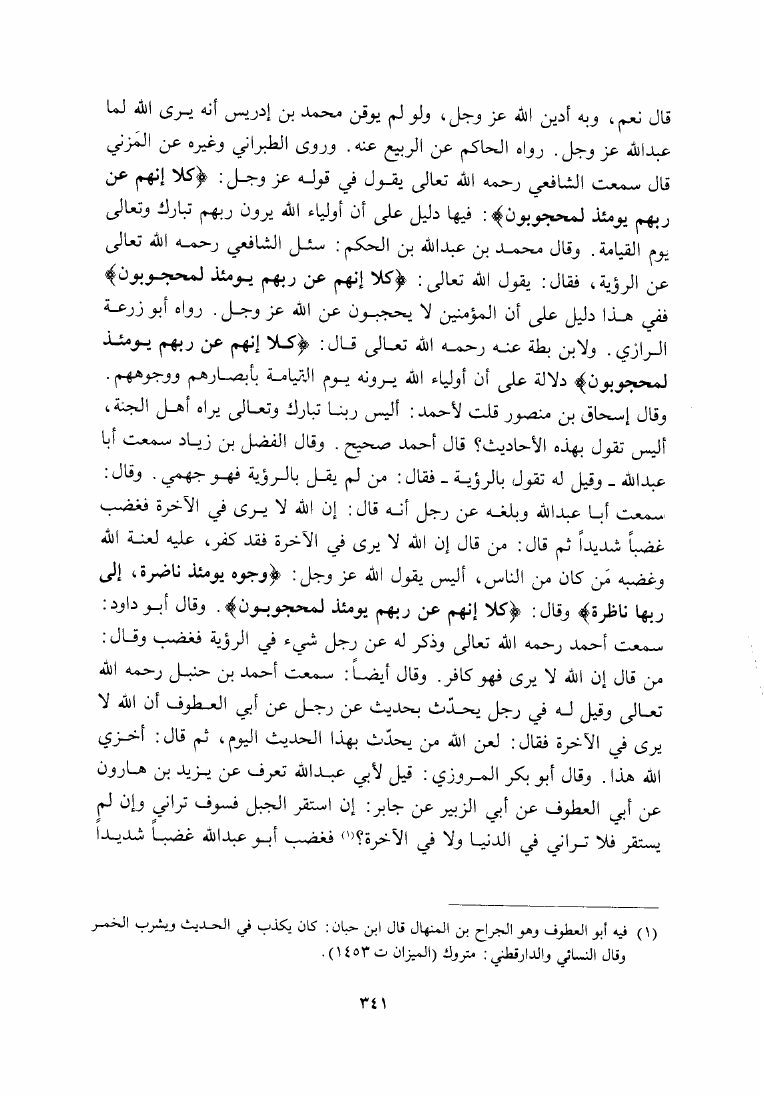 قال نعم، وبه أدين الله عز وجل، ولو لم يوقن محمد بن إدريس أنه يرى الله لما
عبدالله عز وجل. رواه الحاكم عن الربيع عنه. وروى الطبراني وغيره عن المَزني
قال سمعت الشافعي رحمه الله تعالى يقول في قوله عز وجل: ﴿كلا إنهم عن
ربهم يومئذ لمحجوبون﴾: فيها دليل على أن أولياء الله يرون ربهم تبارك وتعالى
يوم القيامة. وقال محمد بن عبدالله بن الحكم: سئل الشافعي رحمه الله تعالى
عن الرؤية، فقال: يقول الله تعالى: ﴿كلا إنهم عن ربهم يومئذ لمحجوبون﴾
ففي هذا دليل على أن المؤمنين لا يحجبون عن الله عز وجل. رواه أبو زرعة
الرازي. ولابن بطة عنه رحمه الله تعالى قال: ﴿كلا إنهم عن ربهم يومئذ
لمحجوبون﴾ دلالة على أن أولياء الله يرونه يوم القيامة بأبصارهم ووجوههم.
وقال إسحاق بن منصور قلت لأحمد: أليس ربنا تبارك وتعالى يراه أهل الجنة،
أليس تقول بهذه الأحاديث؟ قال أحمد صحيح. وقال الفضل بن زياد سمعت أبا
عبدالله ـ وقيل له تقول بالرؤية ـ فقال: من لم يقل بالرؤية فهو جهمي. وقال:
سمعت أبا عبدالله وبلغه عن رجل أنه قال: إن الله لا يرى في الآخرة فغضب
غضباً شديداً ثم قال: من قال إن الله لا يرى في الآخرة فقد كفر، عليه لعنة الله
وغضبه مَن كان من الناس، أليس يقول الله عز وجل: ﴿وجوه يومئذ ناضرة، إلى
ربها ناظرة﴾ وقال: ﴿كلا إنهم عن ربهم يومئذ لمحجوبون﴾. وقال أبو داود:
سمعت أحمد رحمه الله تعالى وذكر له عن رجل شيء في الرؤية فغضب وقال:
من قال إن الله لا يرى فهو كافر. وقال أيضاً: سمعت أحمد بن حنبل رحمه الله
تعالى وقيل له في رجل يحدّث بحديث عن رجل عن أبي العطوف أن الله لا
يرى في الآخرة فقال: لعن الله من يحدّث بهذا الحديث اليوم، ثم قال: أخزي
الله هذا. وقال أبو بكر المروزي: قيل لأبي عبدالله تعرف عن يزيد بن هارون
عن أبي العطوف عن أبي الزبير عن جابر: إن استقر الجبل فسوف تراني وإن لم
يستقر فلا تراني في الدنيا ولا في الآخرة؟(١) فغضب أبو عبدالله غضباً شديداً
(١) فيه أبو العطوف وهو الجراح بن المنهال قال ابن حبان: كان يكذب في الحديث ويشرب الخمر
وقال النسائي والدارقطني: متروك (الميزان ت ١٤٥٣).
٣٤١